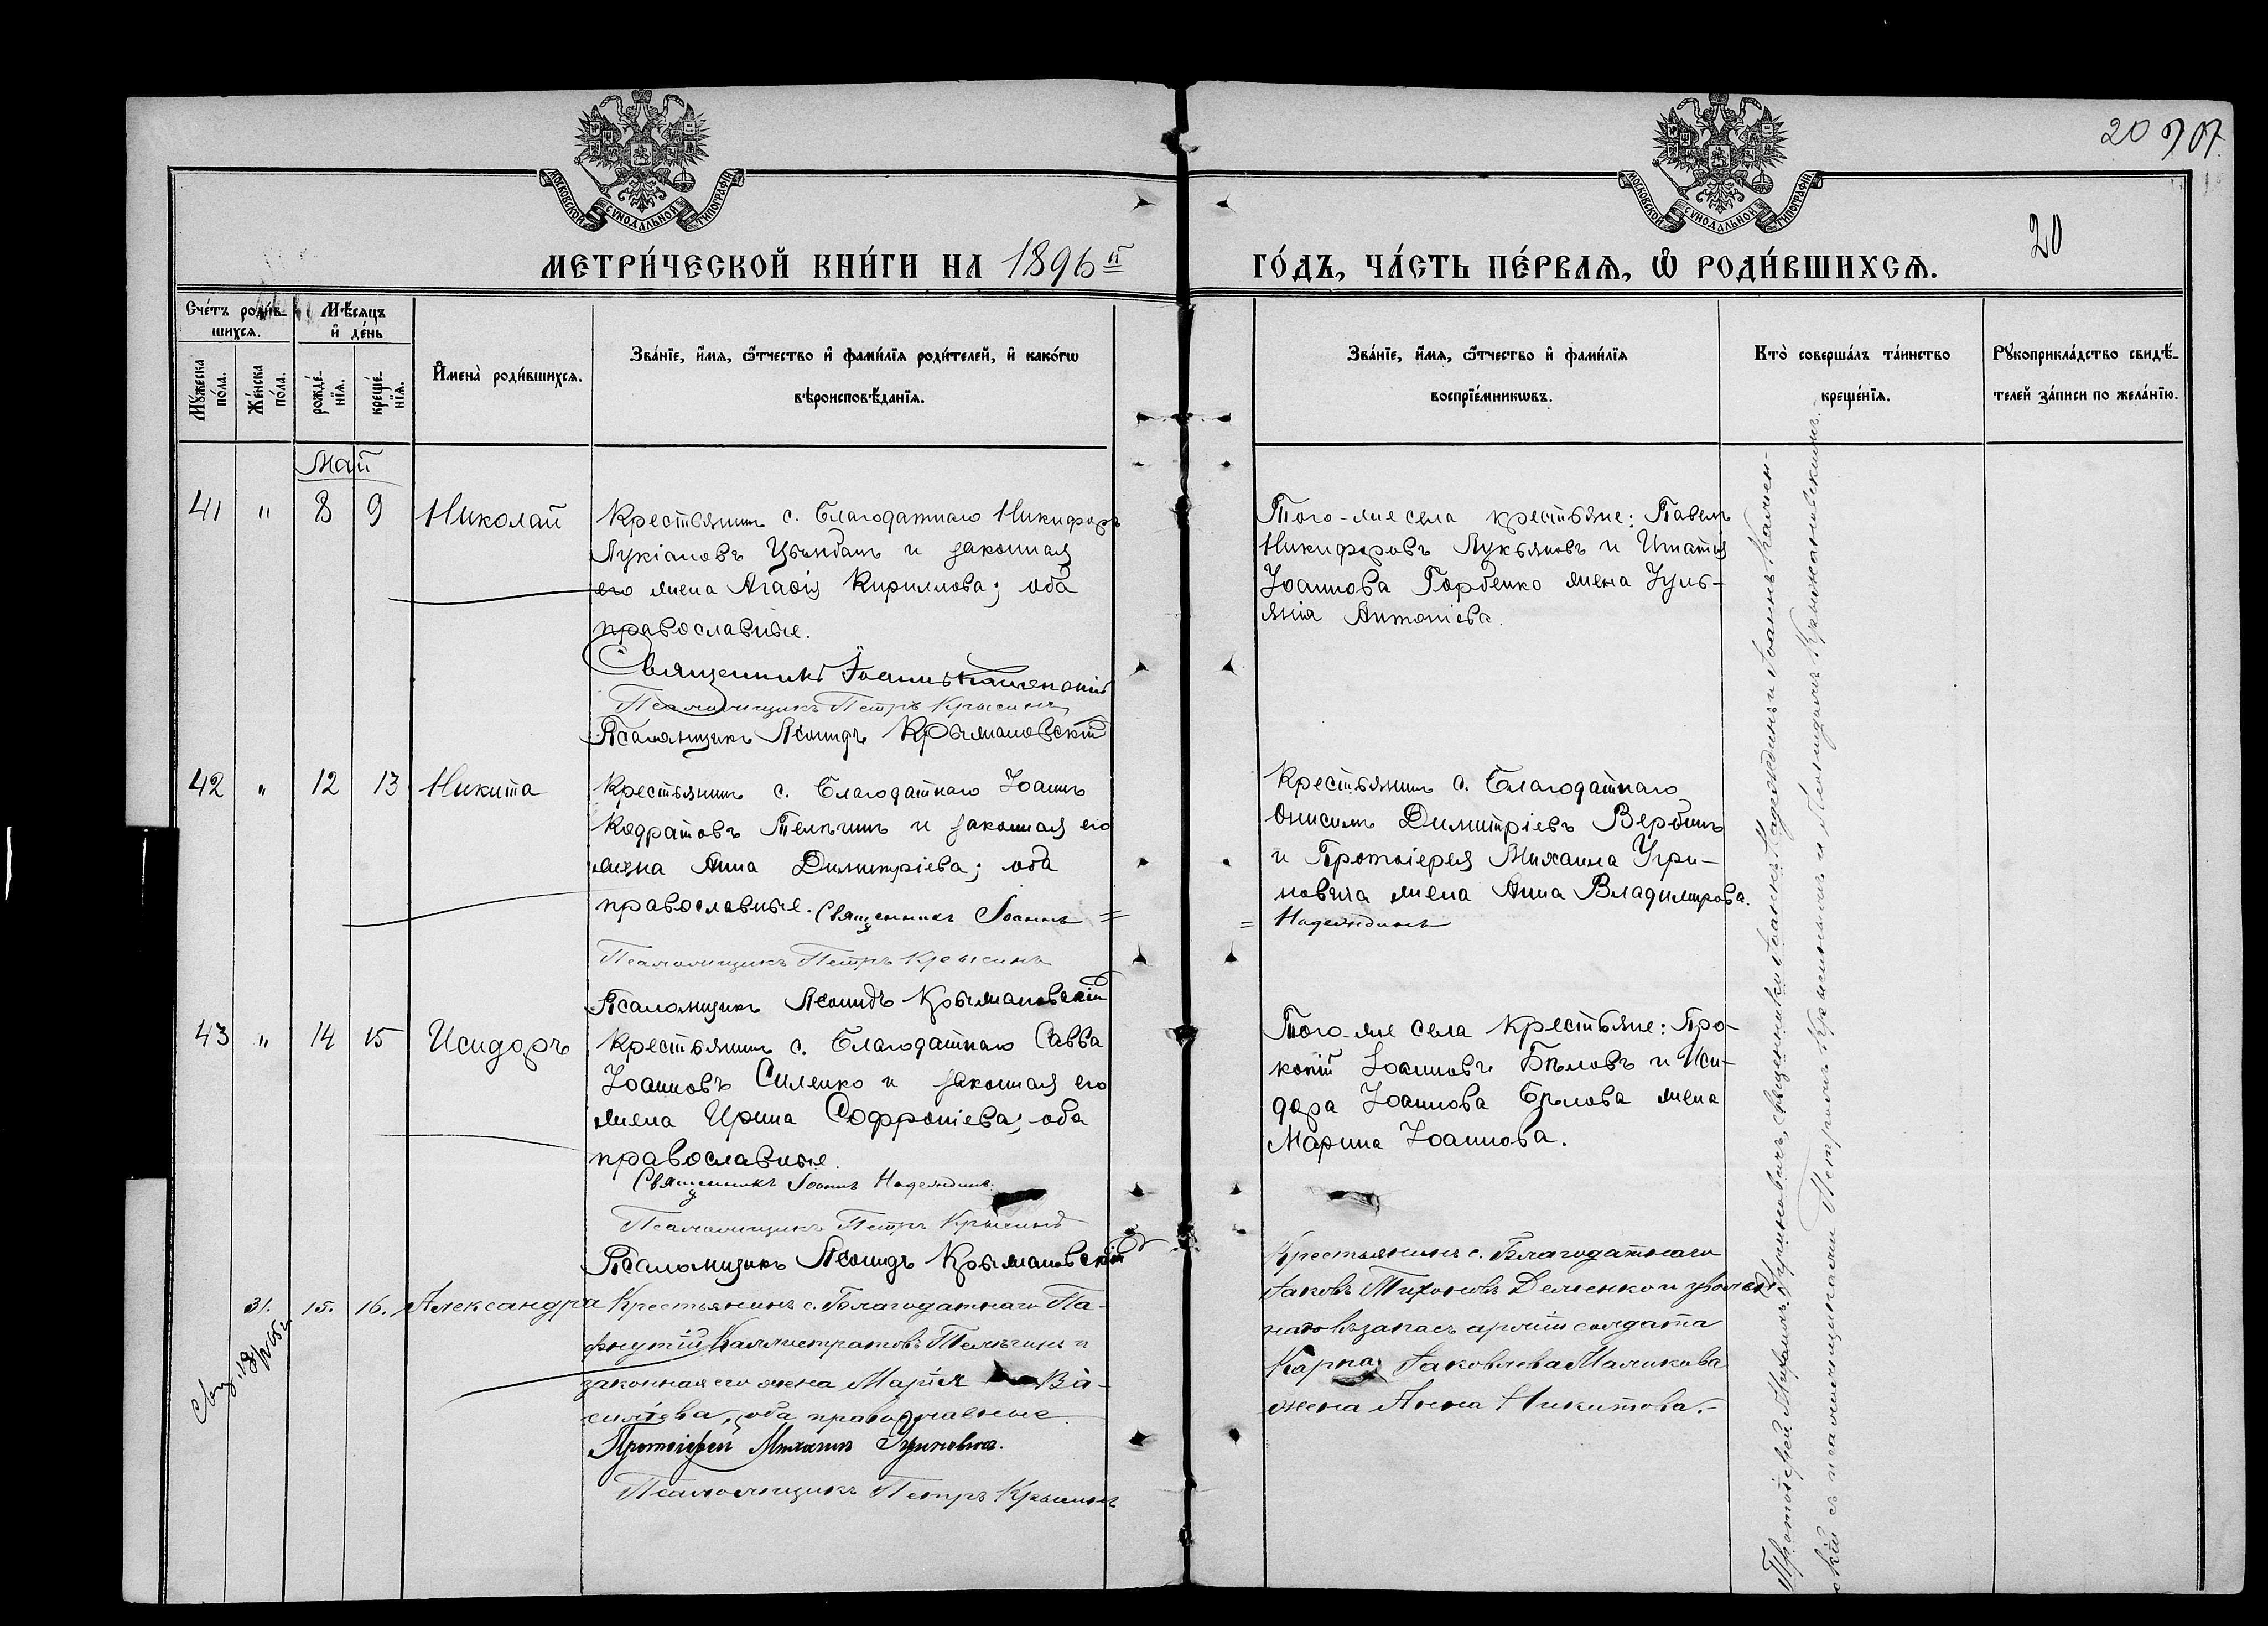 20 907.
МОСКОВСКОЙ СѴНОДАЛЬНОЙ ТИПОГРАФІИ
МОСКОВСКОЙ СѴНОДАЛЬНОЙ ТИПОГРАФІИ
20
МЕТРИ́ЧЕСКОЙ КНИ́ГИ НА 1896й
ГО́ДЪ, ЧА́СТЬ ПЕ́РВАѦ, Ѡ҆ РОДИ́ВШИХСѦ.
Сче́тъ роди́в-
шихсѧ.
Мѣ́сѧцъ
и҆ де́нь
Мꙋ́жеска
по́ла.
Же́нска
по́ла.
рожде́-
нїѧ.
креще́-
нїѧ.
И҆мена̀ роди́вшихсѧ.
Зва́нїе, и҆́мѧ, ѻ҆́тчество и҆ фами́лїѧ роди́телей, и҆ како́гѡ
вѣроисповѣ́данїѧ.
Зва́нїе, и҆́мѧ, ѻ҆́тчество и҆ фами́лїѧ
воспрїе́мникѡвъ.
Кто̀ соверша́лъ та́инство
креще́нїѧ.
Рꙋкоприкла́дство свидѣ́-
телей за́писи по жела́нїю.
Май
41 " 8 9 Николай
Крестьянинъ с. Благодатнаго Никифоръ
Лукіановъ Цвындашъ и законная
его жена Агаѳія Кириллова; оба
православные.
Священникъ Іоаннъ Каменскій
Псаломщикъ Петръ Крысинъ
Псаломщикъ Леонидъ Крыжановскій
Того-же села крестьяне: Павелъ
Никифоровъ Лукьяновъ и Игнатія
Іоаннова Горбенко жена Іуль-
янія Антоніева.
42 " 12 13 Никита
Крестьянинъ с. Благодатнаго Іоаннъ
Кодратовъ Телѣгинъ и законная его
жена Анна Димитріева; оба
православные. Священникъ Іоаннъ =
Псаломщикъ Петръ Крысинъ
Псаломщикъ Леонидъ Крыжановскій
Крестьянинъ с. Благодатнаго
Онисимъ Димитріевъ Вербинъ
и Протоіерея Михаила Угри-
новича жена Анна Владимірова.
= Надеждинъ
43 " 14 15 Исидоръ
Крестьянинъ с. Благодатнаго Савва
Іоанновъ Силенко и законная его
жена Ирина Софроніева; оба
православные.
Священникъ Іоаннъ Надеждинъ.
Псаломщикъ Петръ Крысинъ
Псаломщикъ Леонидъ Крыжановскій
Того же села крестьяне: Про-
копій Іоанновъ Бѣловъ и Иси-
дора Іоаннова Бѣлова жена
Марина Іоаннова.
31. 15. 16. Александра
Крестьянинъ с. Благодатнаго Па-
фнутій Каллистратовъ Телѣгинъ и
законная его жена Марія Ва-
силіева, оба православные.
Протоіерей Михаилъ Угриновичъ.
Псаломщикъ Петръ Крысинъ
Крестьянинъ с. Благодатнаго
Іаковъ Тихоновъ Деменко и уволен-
наго въ запасъ арміи солдата
Карпа Іаковлева Маликова
жена Анна Никитова.-
Протоіерей Михаилъ Угриновичъ, священники Іоаннъ Надеждинъ и Іоаннъ Камен-
скій съ псаломщиками Петромъ Крысинымъ и Леонидомъ Крыжановскимъ.